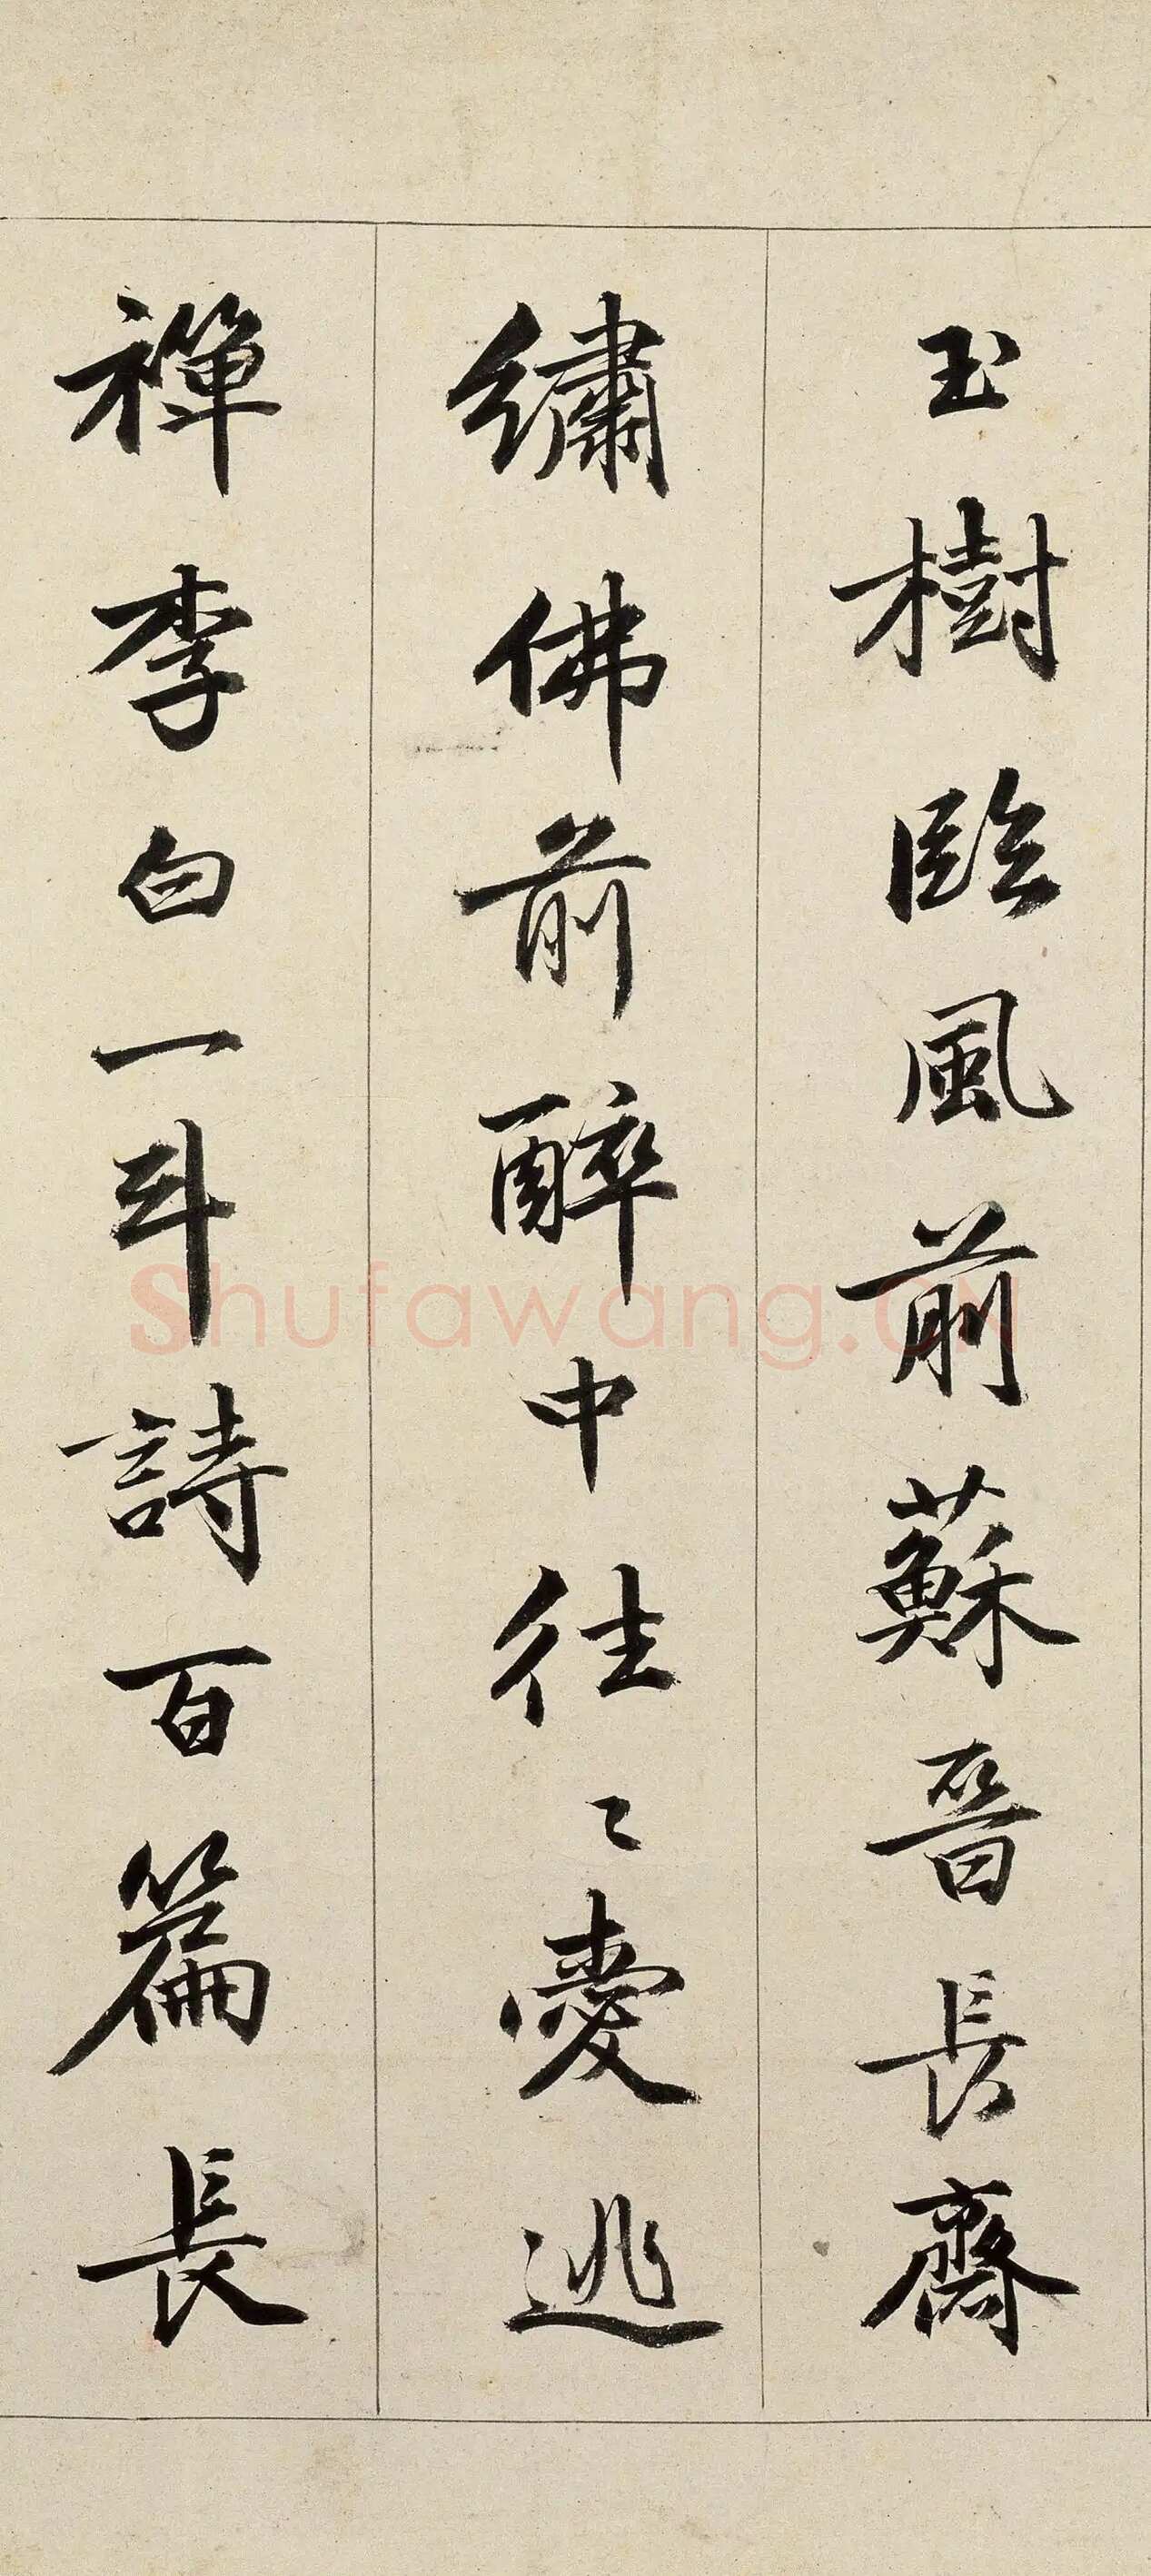 玉樹臨風前蘇晉長齋
繡佛前醉中往〻愛逃
禪李白一斗詩百篇長
Shufawang.CN